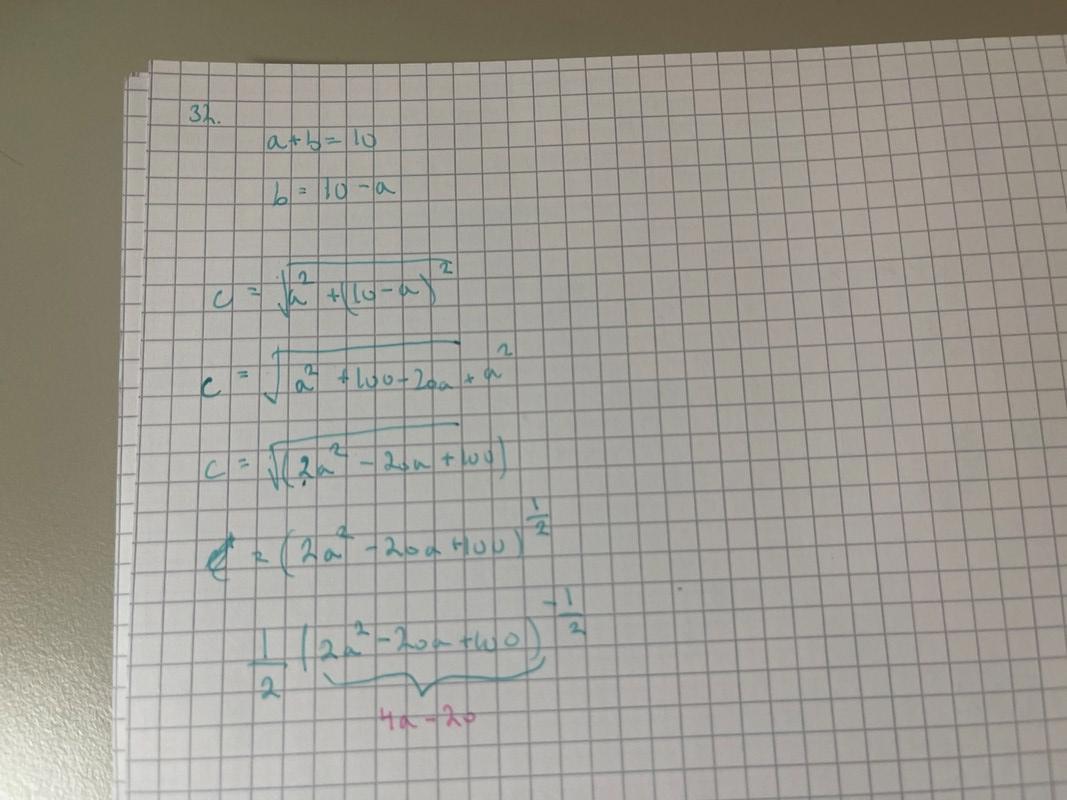 32.
a+b = 10
b = 10 - a
c = √a² + (10 - a)²
c = √a² + 100 - 20a + a²
c = √(2a² - 20a + 100)
= (2a² - 20a + 100)^1/2
1/2 (2a² - 20a + 100)^-1/2
4a - 20